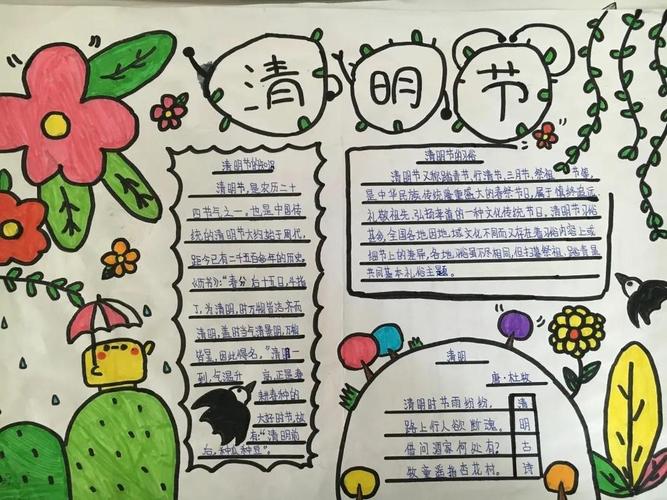 清明节
清明节的知识
清明节,是农历二十
四节气之一。也是中国传
统的清明节大约始于周代,
距今已有二千五百余年的历史。
《历书》:"春分后十五日,斗指
丁,为清明,时万物皆洁齐而
清明,盖时当气清景明,万物
皆显,因此得名。"清明一
到,气温升 高,正是春
耕春种的
大好时节,故
有"清明前
后,种瓜种豆"。
清明节的习俗
清明节又称踏青节,行清节,三月节,祭祖 节,节俗
是中华民族传统隆重盛大的春祭节日,属于慎终追远
礼敬祖先,弘扬孝道的一种文化传统节日。清明节习俗
甚會,全国各地因地,域文化不同而又存在着习俗内容上或
细节上的差异,各地习俗虽不尽相同,但扫墓祭祖,踏青是
共同基本礼俗主题。
清明
唐·杜牧
清明时节雨纷纷,
路上行人欲断魂。
借问酒家何处有?
牧童遥指杏花村。
清
明
古
诗